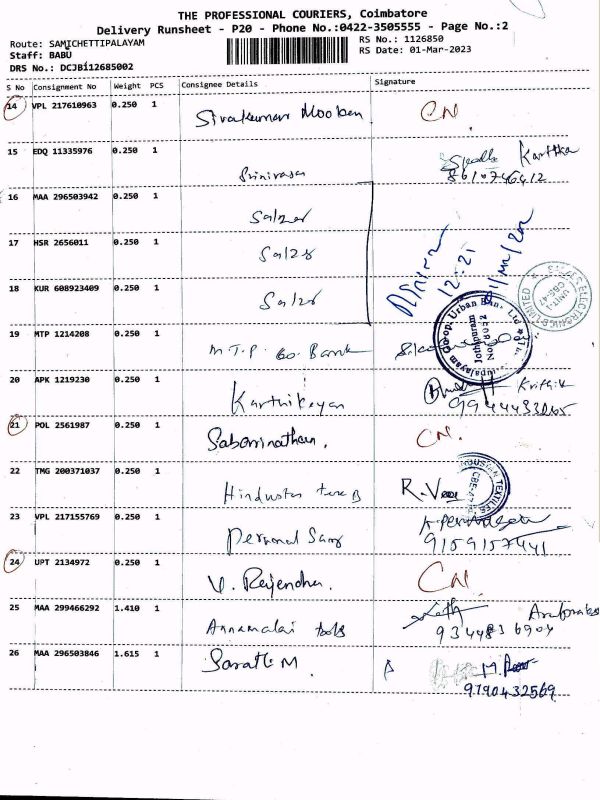 THE PROFESSIONAL COURIERS, Coimbatore
Delivery Runsheet - P20 - Phone No.:0422-3505555 - Page No.:2
Route: SAMICHETTIPALAYAM
RS No.: 1126850
Staff: BABU
RS Date: 01-Mar-2023
DRS No.: DCJB112685002
S No Consignment No Weight PCS Consignee Details Signature
14 VPL 217610963 0.250 1 Sivakumar Mooban CN.
15 EDQ 11335976 0.250 1 Srinivasan Karthka
8610746412
16 MAA 296503942 0.250 1 Salzer
17 HSR 2656011 0.250 1 Salzer
12:21
18 KUR 608923409 0.250 1 Salzer
19 MTP 1214208 0.250 1 M.T.P. Co. Bank
20 APK 1219230 0.250 1 Karthikeyan Krithik
21 POL 2561987 0.250 1 Sabarinathan. CN.
22 TMG 200371037 0.250 1 Hindustan
23 VPL 217155769 0.250 1 Personal Sang
9159157441
24 UPT 2134972 0.250 1 V. Rajendra. CN.
25 MAA 299466292 1.410 1 Annamalai tools
9344836904
26 MAA 296503846 1.615 1 Sarath M
9790432569